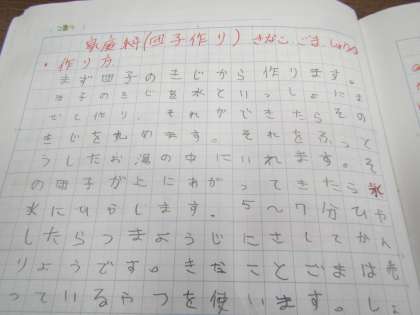 家庭科(団子作り) きなこ ごま しょうゆ
・作り方
まず団子のきじから作ります。
団子のきじを水といっしょにま
ぜて作り、それができたらその
きじを丸めます。それをふっと
うしたお湯の中にいれます。そ
の団子が上にあがってきたら氷
水にひやします。5〜7分ひや
したらつまようじにさしてかん
りょうです。きなことごまは売
っているやつを使います。しょ